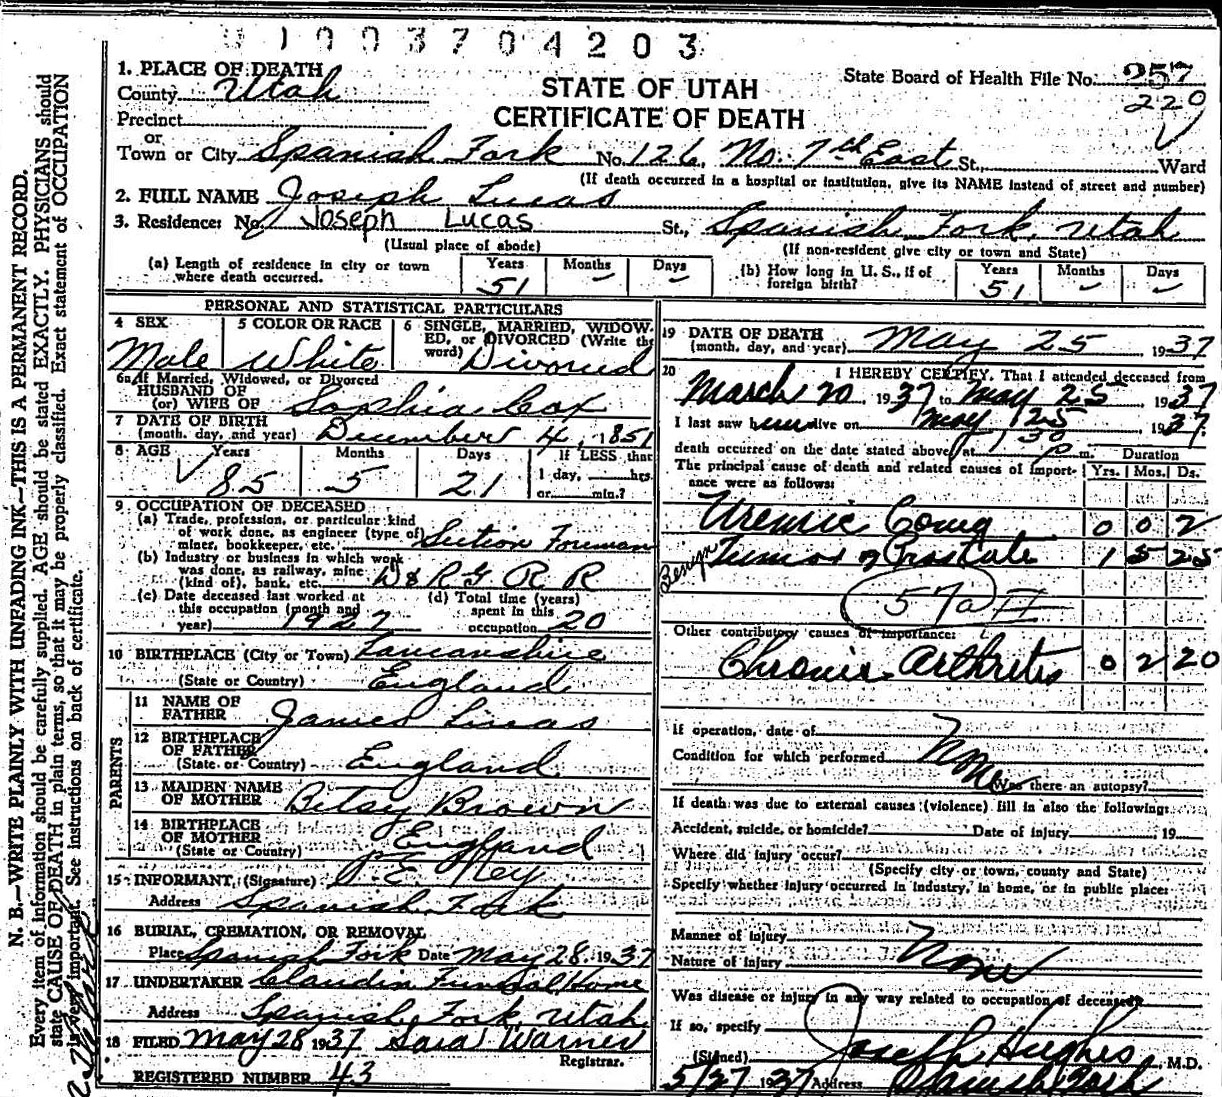 1003704203
1. PLACE OF DEATH
County Utah
Precinct
or
Town or City Spanish Fork No. 126 No. 7th East St. Ward
STATE OF UTAH
CERTIFICATE OF DEATH
State Board of Health File No. 257
220
(If death occurred in a hospital or institution, give its NAME instead of street and number)
2. FULL NAME Joseph Lucas
3. Residence: No. Joseph Lucas St., Spanish Fork, Utah
(Usual place of abode) (If non-resident give city or town and State)
(a) Length of residence in city or town where death occurred. Years 51 Months – Days –
(b) How long in U. S., if of foreign birth? Years 51 Months – Days –
PERSONAL AND STATISTICAL PARTICULARS
4 SEX Male
5 COLOR OR RACE White
6 SINGLE, MARRIED, WIDOWED, or DIVORCED (Write the word) Divorced
6a If Married, Widowed, or Divorced
HUSBAND OF
(or) WIFE OF Sophia Cox
7 DATE OF BIRTH
(month, day, and year) December 4, 1851
8 AGE Years 85 Months 5 Days 21 If LESS than 1 day, hrs. or min.?
9 OCCUPATION OF DECEASED
(a) Trade, profession, or particular kind of work done, as engineer (type of) miner, bookkeeper, etc. Section Foreman
(b) Industry or business in which work was done as railway, mine (kind of), bank, etc. D & R G R R
(c) Date deceased last worked at this occupation (month and year) 1927
(d) Total time (years) spent in this occupation 20
10 BIRTHPLACE (City or Town) Lancanshire
(State or Country) England
PARENTS
11 NAME OF FATHER James Lucas
12 BIRTHPLACE OF FATHER
(State or Country) England
13 MAIDEN NAME OF MOTHER Betsy Brown
14 BIRTHPLACE OF MOTHER
(State or Country) England
15 INFORMANT, (Signature) P. E. Key
Address Spanish Fork
16 BURIAL, CREMATION, OR REMOVAL
Place Spanish Fork Date May 28 1937
17 UNDERTAKER Claudin Funeral Home
Address Spanish Fork, Utah
18 FILED May 28 1937 Sara Warner
Registrar.
REGISTERED NUMBER 43
19 DATE OF DEATH
(month, day, and year) May 25 1937
20 I HEREBY CERTIFY, That I attended deceased from
March 20 1937 to May 25 1937
I last saw him alive on May 25 1937
death occurred on the date stated above, at 1 30 p m. Duration
The principal cause of death and related causes of importance were as follows: Yrs. Mos. Ds.
Uremic Coma 0 0 2
Benign Tumor of Prostate 1 5 25
57a II
Other contributory causes of importance:
Chronic Arthritis 0 2 20
If operation, date of
Condition for which performed None
Was there an autopsy?
If death was due to external causes (violence) fill in also the following:
Accident, suicide, or homicide? Date of injury 19
Where did injury occur?
(Specify city or town, county and State)
Specify whether injury occurred in industry, in home, or in public place:
Manner of Injury
Nature of Injury None
Was disease or injury in any way related to occupation of deceased?
If so, specify
(Signed) Joseph Hughes, M.D.
5/27 1937 Address Spanish Fork
N. B.—WRITE PLAINLY WITH UNFADING INK—THIS IS A PERMANENT RECORD.
Every item of information should be carefully supplied. AGE should be stated EXACTLY. PHYSICIANS should
state CAUSE OF DEATH in plain terms, so that it may be properly classified. Exact statement of OCCUPATION
is very important. See instructions on back of certificate.